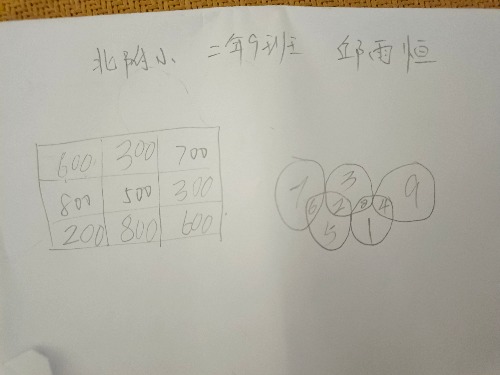 北附小 二年9班 邱雨恒
600 300 700
800 500 300
200 800 600
7 3 9
6 2 8 4
5 1